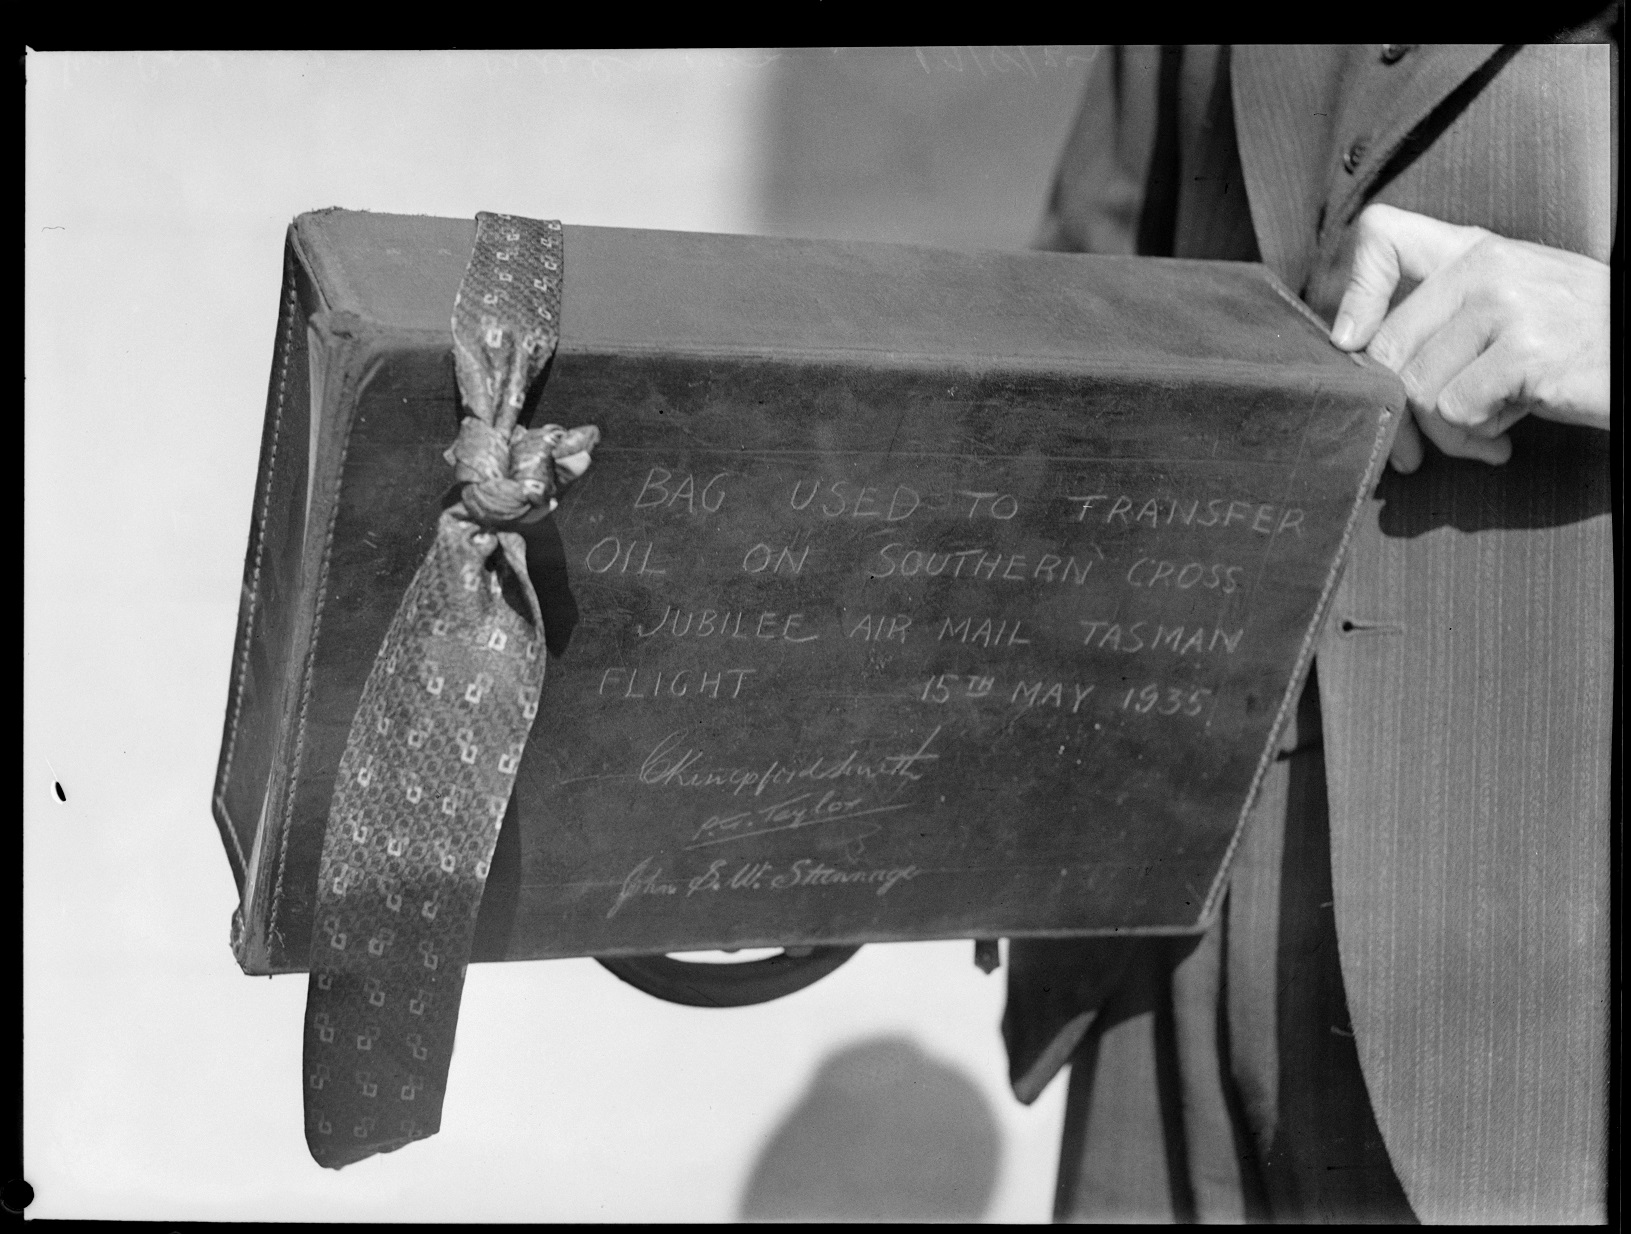 BAG USED TO TRANSFER
OIL ON SOUTHERN CROSS
JUBILEE AIR MAIL TASMAN
FLIGHT 15TH MAY 1935
CKingsfordSmith
P.G. Taylor
John S.W. Stannage